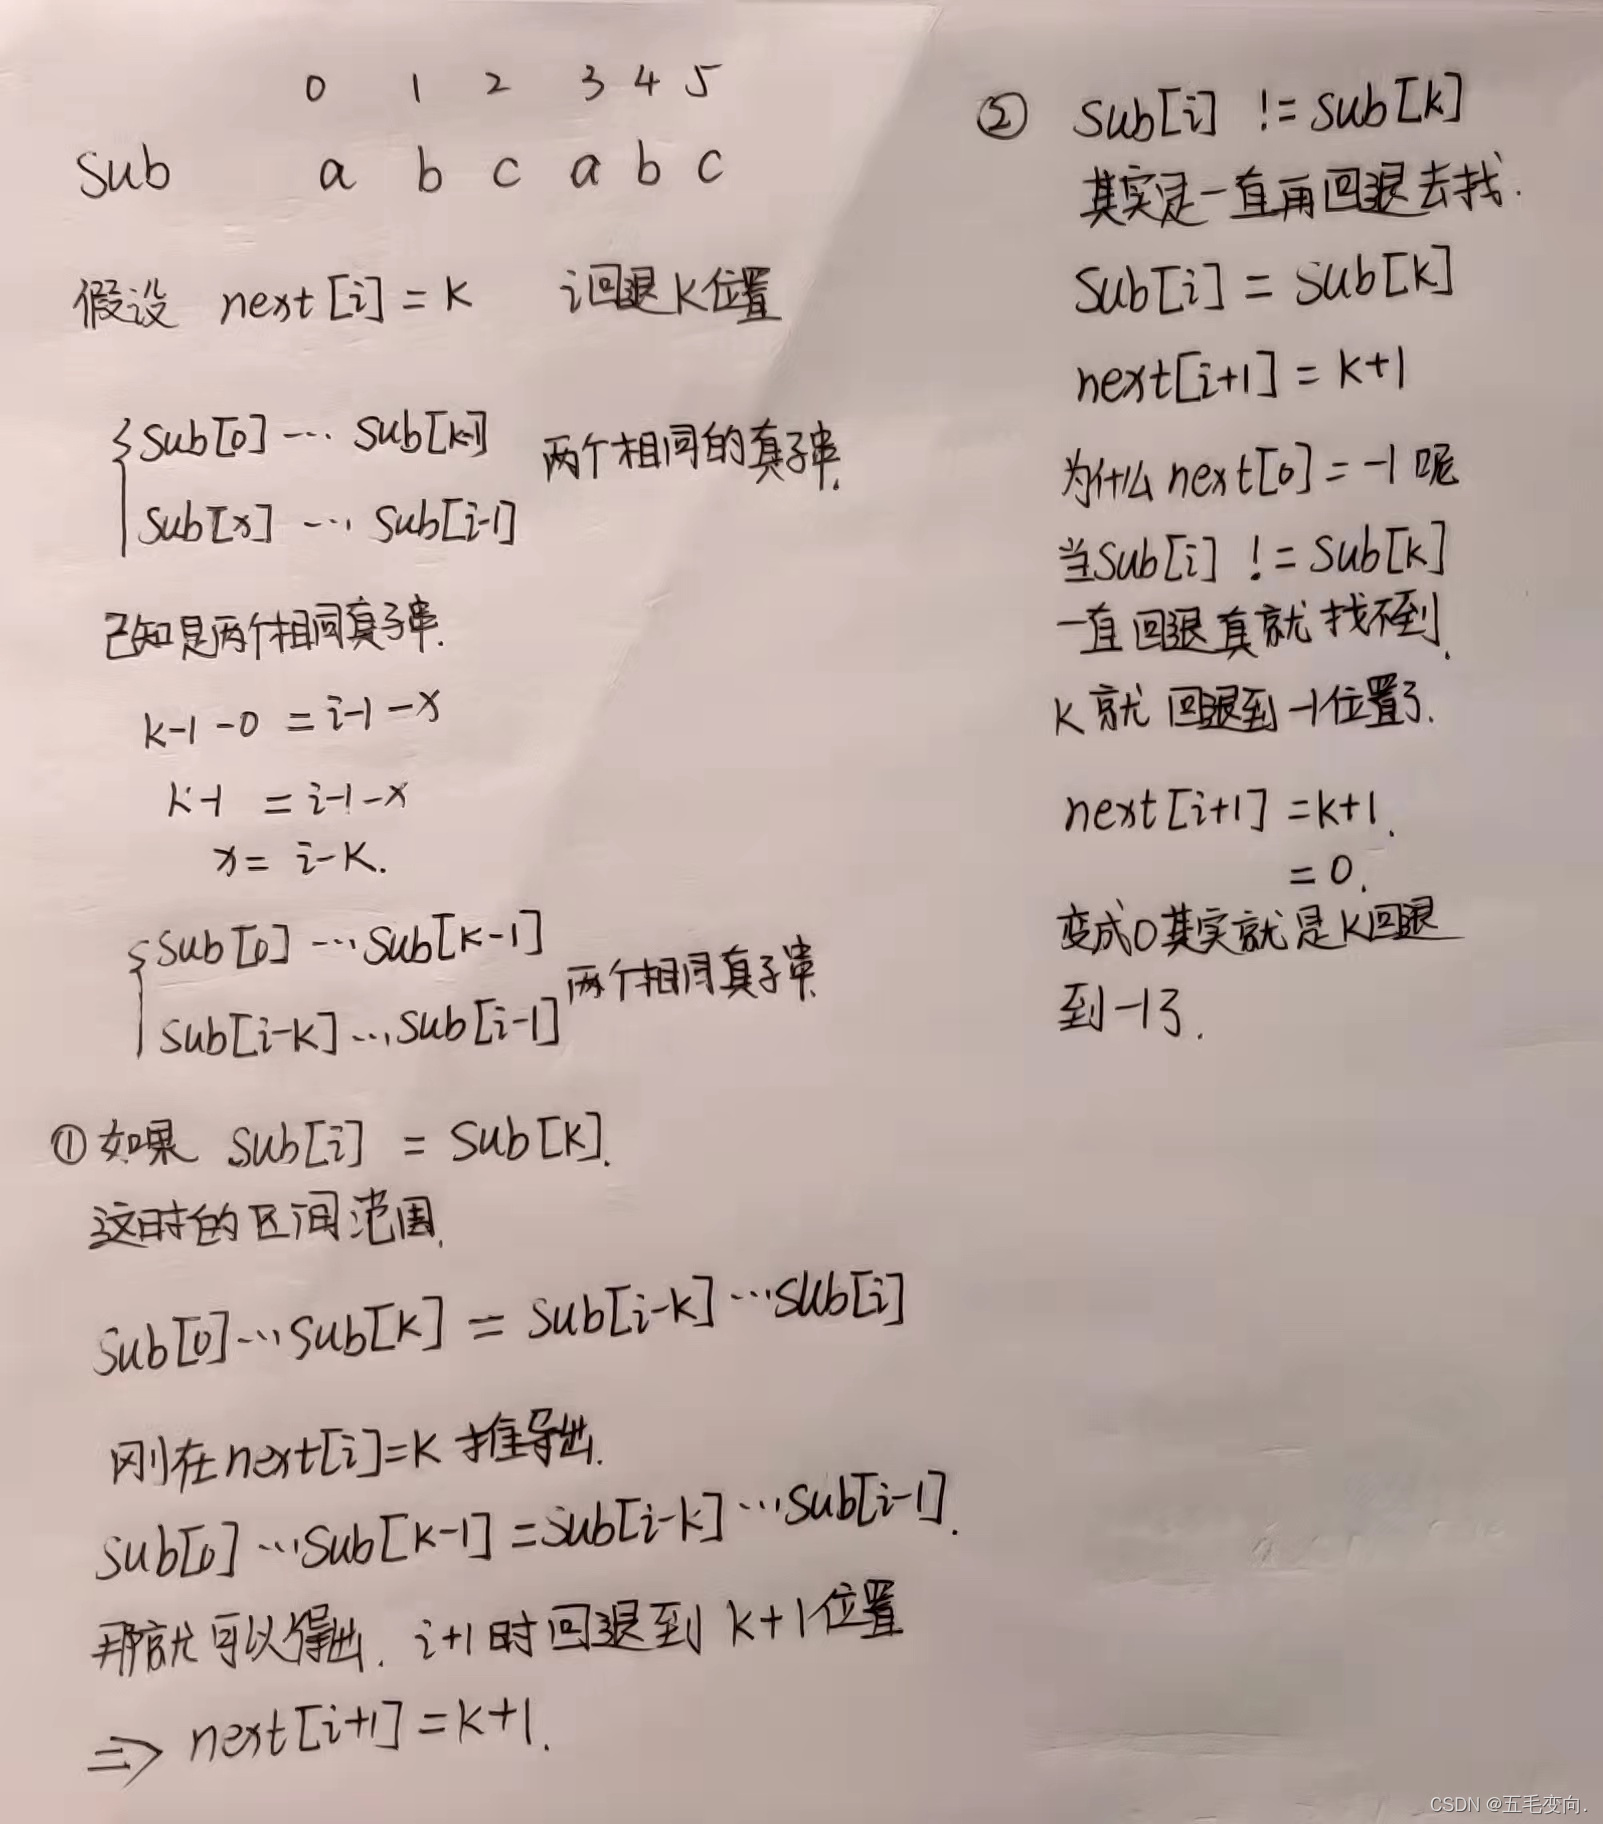 0 1 2 3 4 5
Sub a b c a b c
假设 next[i]=k i回退k位置
Sub[0]…Sub[k-1] 两个相同的真子串.
Sub[x]…Sub[i-1]
已知是两个相同真子串.
k-1-0=i-1-x
k-1=i-1-x
x=i-k.
Sub[0]…Sub[k-1] 两个相同真子串.
Sub[i-k]…Sub[i-1]
①如果 Sub[i] = Sub[k].
这时的区间范围.
Sub[0]…Sub[k] = Sub[i-k]…Sub[i]
刚在next[i]=k推导出.
Sub[0]…Sub[k-1]=Sub[i-k]…Sub[i-1].
那就可以得出. i+1时回退到k+1位置
⇒ next[i+1]=k+1.
② Sub[i] != Sub[k]
其实是一直再回退去找.
Sub[i] = Sub[k]
next[i+1]=k+1
为什么next[0]=-1呢
当Sub[i] != Sub[k]
一直回退真就找不到.
k就回退到-1位置了.
next[i+1]=k+1.
=0.
变成0其实就是k回退
到-1了.
CSDN @五毛变向.